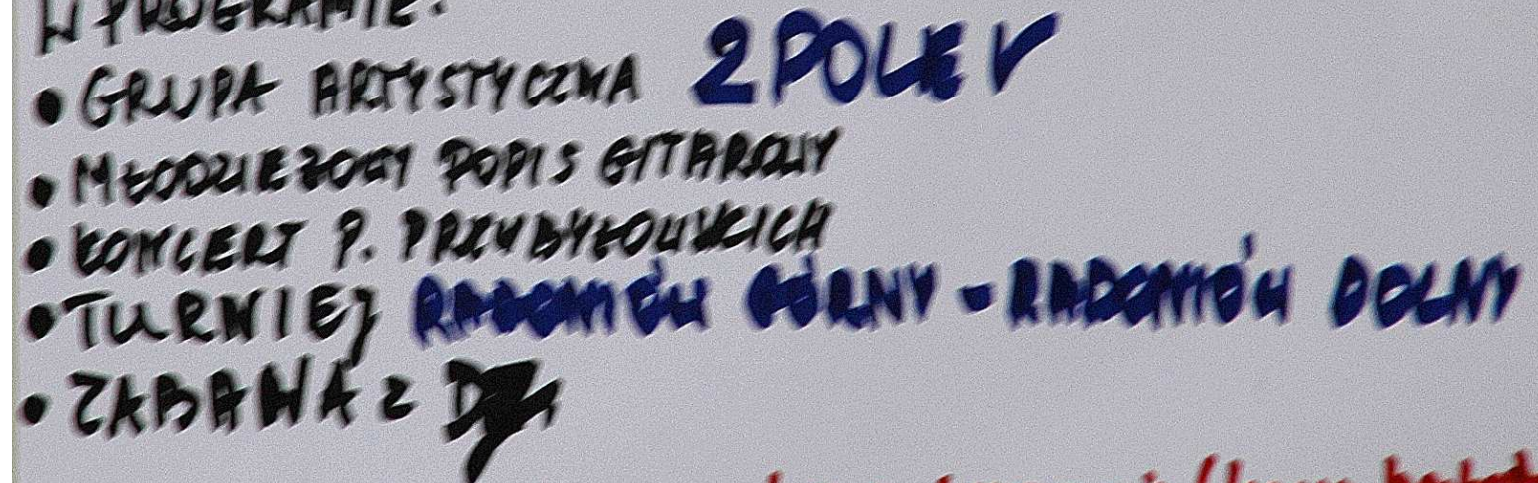 W PROGRAMIE:
• GRUPA ARTYSTYCZNA 2 POLEV
• MŁODZIEŻOWY POPIS GITAROWY
• KONCERT P. PRZYBYŁOWSKICH
• TURNIEJ RADOMIÓW GÓRNY - RADOMIÓW DOLNY
• ZABAWA Z